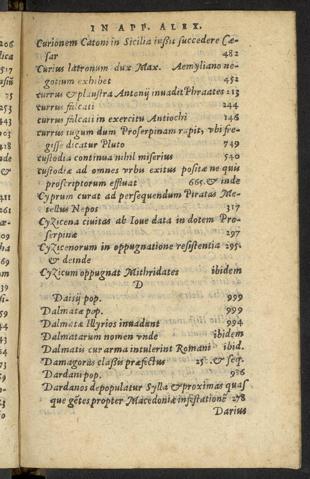 IN APP. ALEX.
Curionem Catoni in Sicilia iussit succedere Cæ-
sar 482
Curius latronum dux Max. Aemyliano ne-
gotium exhibet 452
currus & plaustra Antonij inuadit Phraates 213
currus falcati 244
currus falcati in exercitu Antiochi 146
currus iugum dum Proserpinam rapit, vbi fre-
gisse dicatur Pluto 749
custodia continua nihil miserius 540
custodiæ ad omnes vrbis exitus positæ ne quis
proscriptorum effluat 665. & inde
Cyprum curat ad persequendum Piratas Me-
tellus Nepos 317
Cyzicena ciuitas ab Ioue data in dotem Pro-
serpinæ 297
Cyzicenorum in oppugnatione resistentia 295.
& deinde
Cyzicum oppugnat Mithridates ibidem
D
Daisij pop. 999
Dalmatæ pop. 999
Dalmatæ Illyrios inuadunt 994
Dalmatarum nomen vnde ibidem
Dalmatis cur arma intulerint Romani ibid.
Damagoras classis præfectus & seq.
Dardani pop. 986
Dardanos depopulatur Sylla & proximas quas
que gẽtes propter Macedoniæ infestationẽ 278
Darius
206
517
25
253
443
103
418
493
411
261
443
470